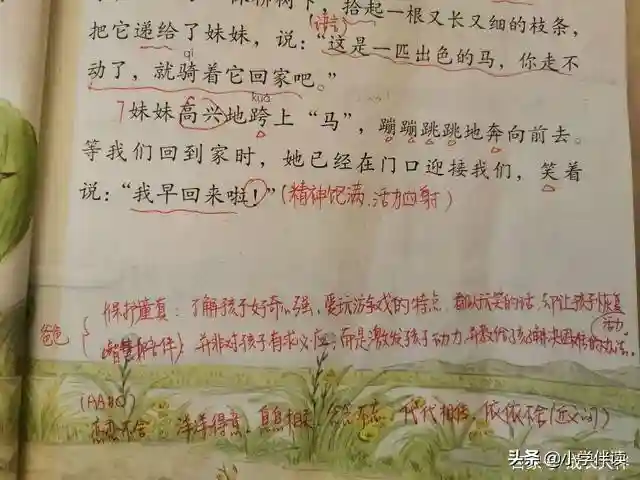 保柳树下，拾起一根又长又细的枝条，
(语言)
把它递给了妹妹，说：“这是一匹出色的马，你走不
qí
动了，就骑着它回家吧。”
kuà
7 妹妹高兴地跨上“马”，蹦蹦跳跳地奔向前去。
等我们回到家时，她已经在门口迎接我们，笑着
说：“我早回来啦！”(精神饱满、活力四射)
保护童真：了解孩子好奇心强、爱玩游戏的特点，看似玩笑的话，却让孩子恢复
活力。
爸爸
并非对孩子有求必应，而是激发孩子动力，并教给了孩子解决困难的办法。
(AABC)
恋恋不舍 洋洋得意、息息相关 念念不忘 代代相传 依依不舍(近义词)
头条 @小学伴读